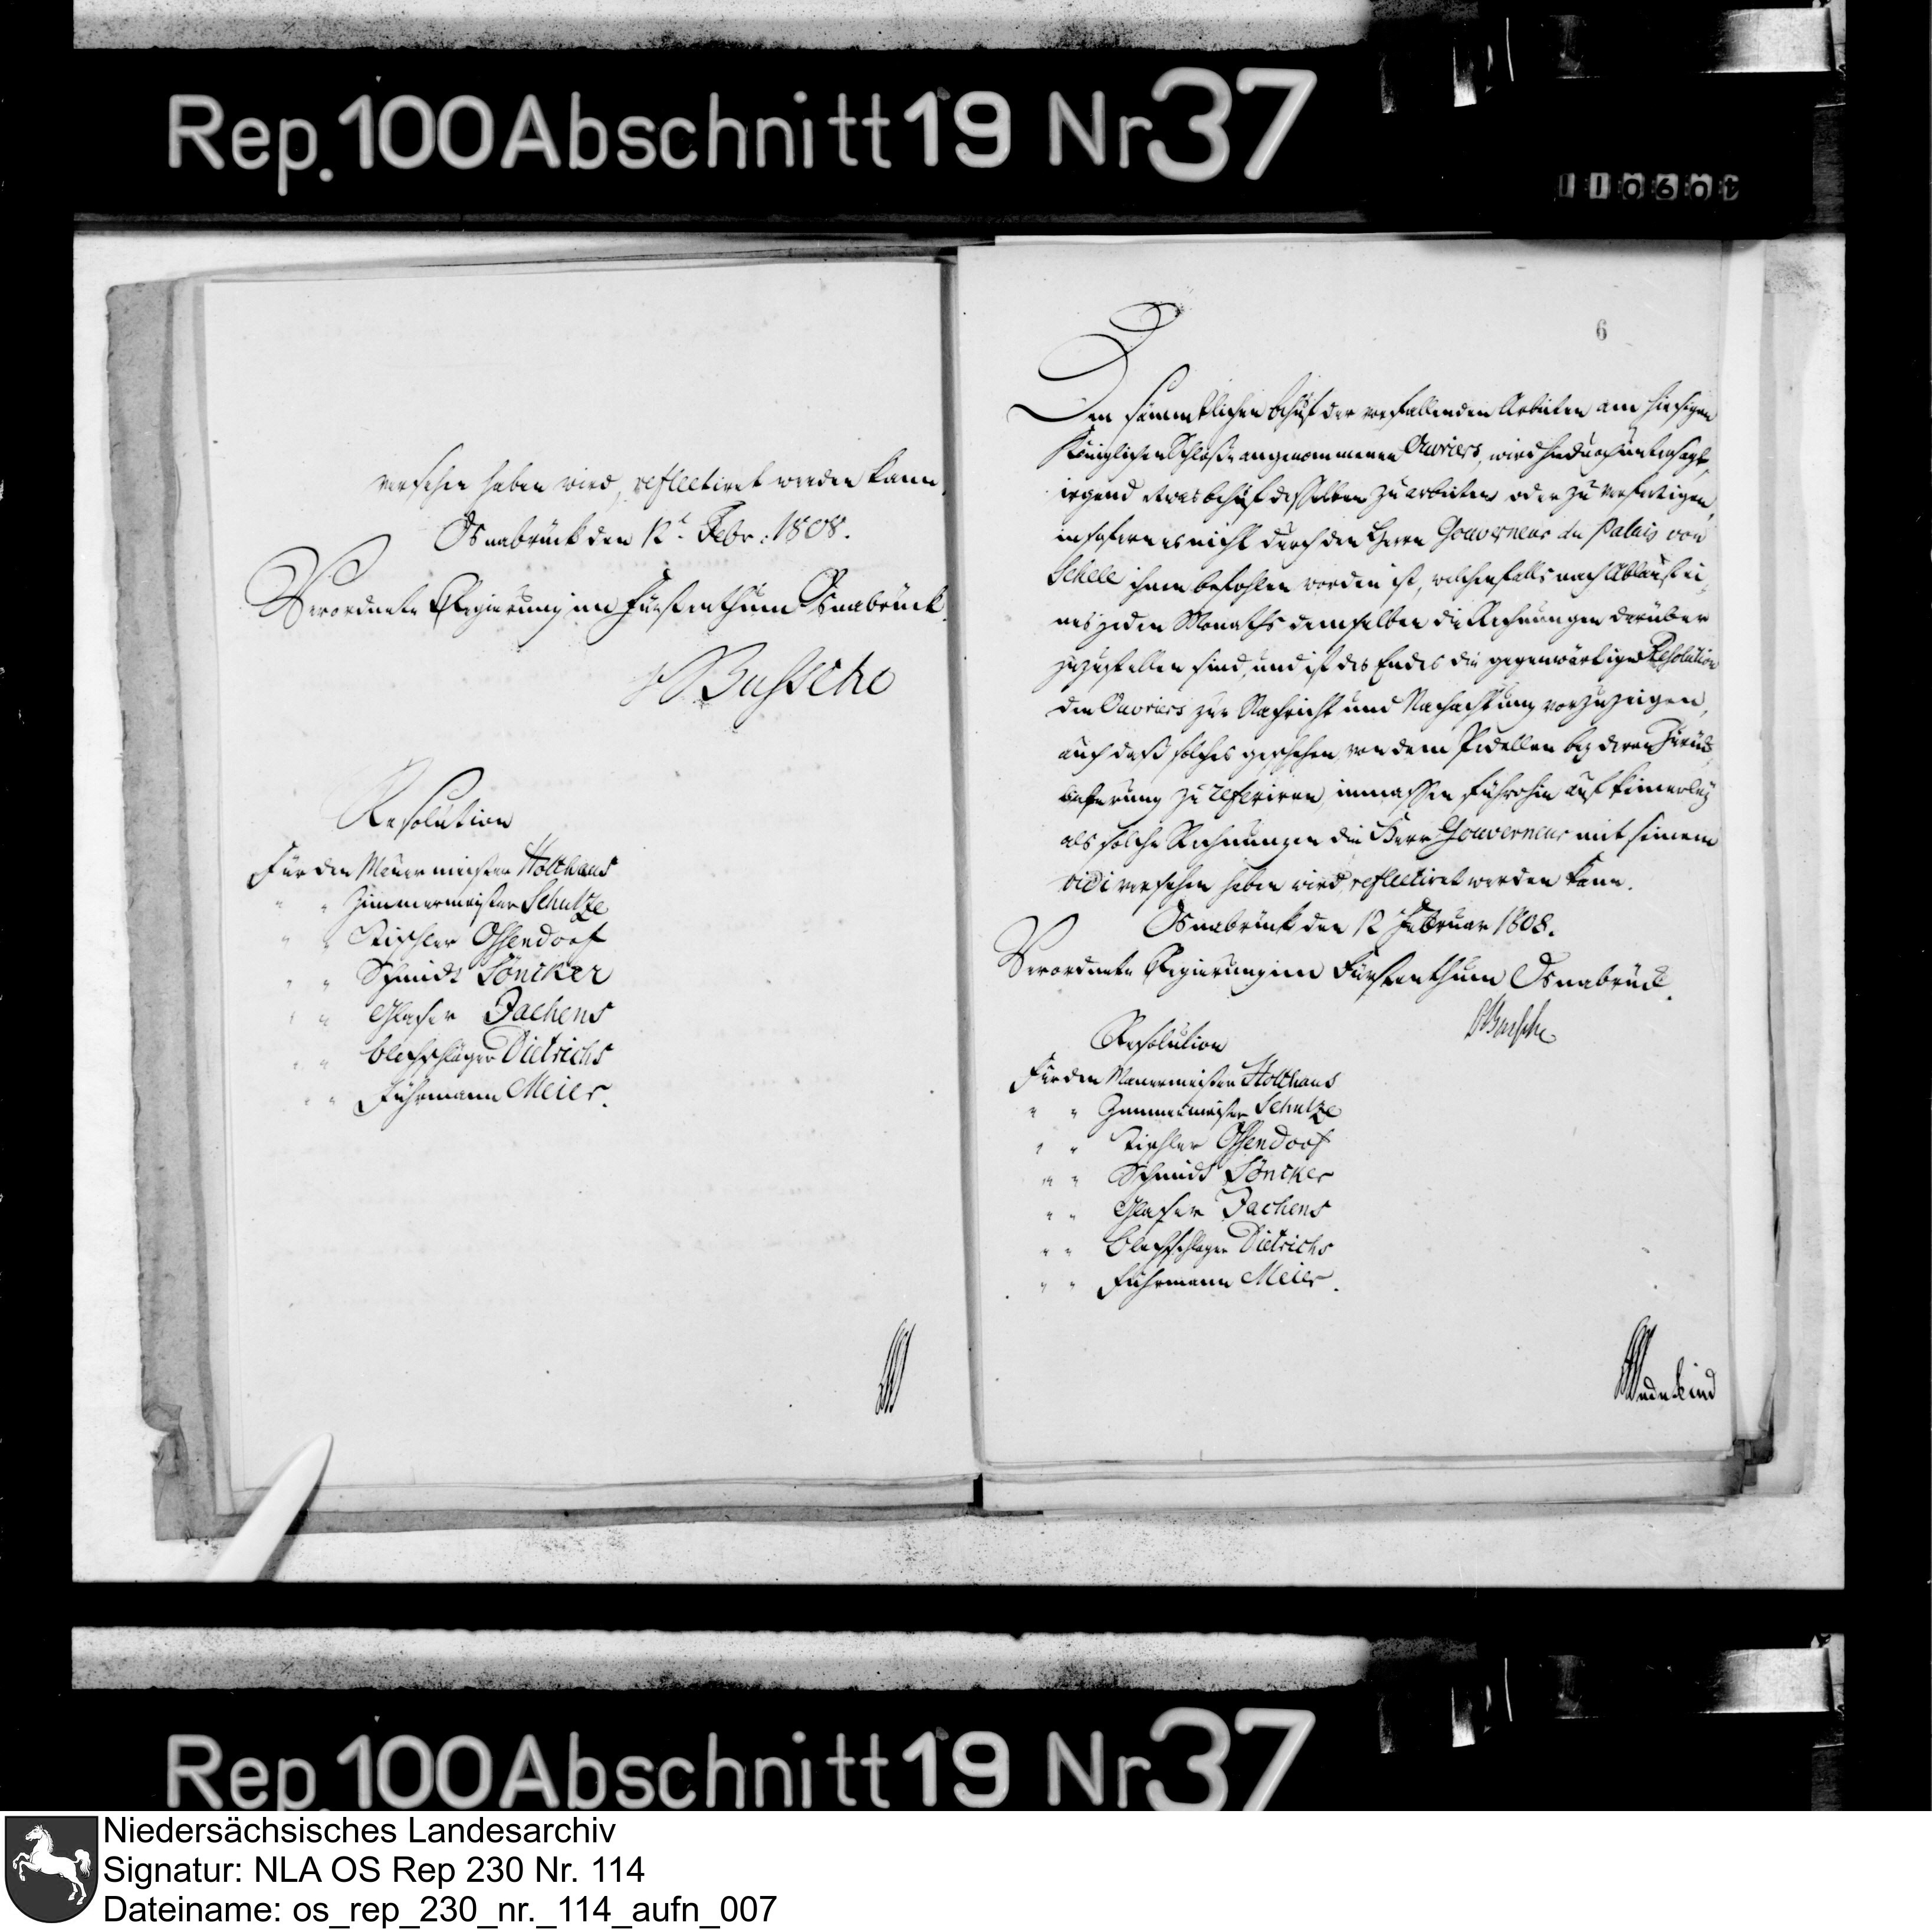 Rep. 100 Abschnitt 19 Nr 37
110604
versehen haben wird, reflectiret werden kann.
Osnabrück den 12t. Febr: 1808.
Verordnete Regierung im Fürstenthum Osnabrück.
Bussche
Resolution
Für den Mauermeister Holthaus
" " Zimmermeister Schultze
" " Tischler Ossendorf
" " Schmidt Söncker
" " Glaser Jachens
" " Blechschläger Dietrichs
" " Fuhrmann Meier.
6
Den sämmtlichen behuf der vorfallenden Arbeiten am hiesigen
Königlichen Schlosse angenommenen Ouvriers, wird hiedurch untersagt,
irgend etwas behuf desselben zu arbeiten oder zu verfertigen,
insofern es nicht durch den Herrn Gouverneur du Palais von
Schele ihnen befohlen worden ist, welchenfalls nach Ablauf ei-
nes jeden Monaths demselben die Rechnungen darüber
zuzustellen sind, und ist des Endes die gegenwärtige Resolution
den Ouvriers zur Nachricht und Nachachtung vorzuzeigen,
auch daß solches geschehen, von dem Pedellen bey deren Zurück-
lieferung zu referiren, inmassen führohin auf keinerley
als solche Rechnungen die Herr Gouverneur mit seinem
vidi versehen haben wird, reflectiret werden kann.
Osnabrück den 12 Februar 1808.
Verordnete Regierung im Fürstenthum Osnabrück.
Bussche
Resolution
Für den Mauermeister Holthaus
" " Zimmermeister Schultze
" " Tischler Ossendorf
" " Schmidt Söncker
" " Glaser Jachens
" " Blechschlager Dietrichs
" " Fuhrmann Meier.
Wedekind
Rep. 100 Abschnitt 19 Nr 37
Niedersächsisches Landesarchiv
Signatur: NLA OS Rep 230 Nr. 114
Dateiname: os_rep_230_nr._114_aufn_007